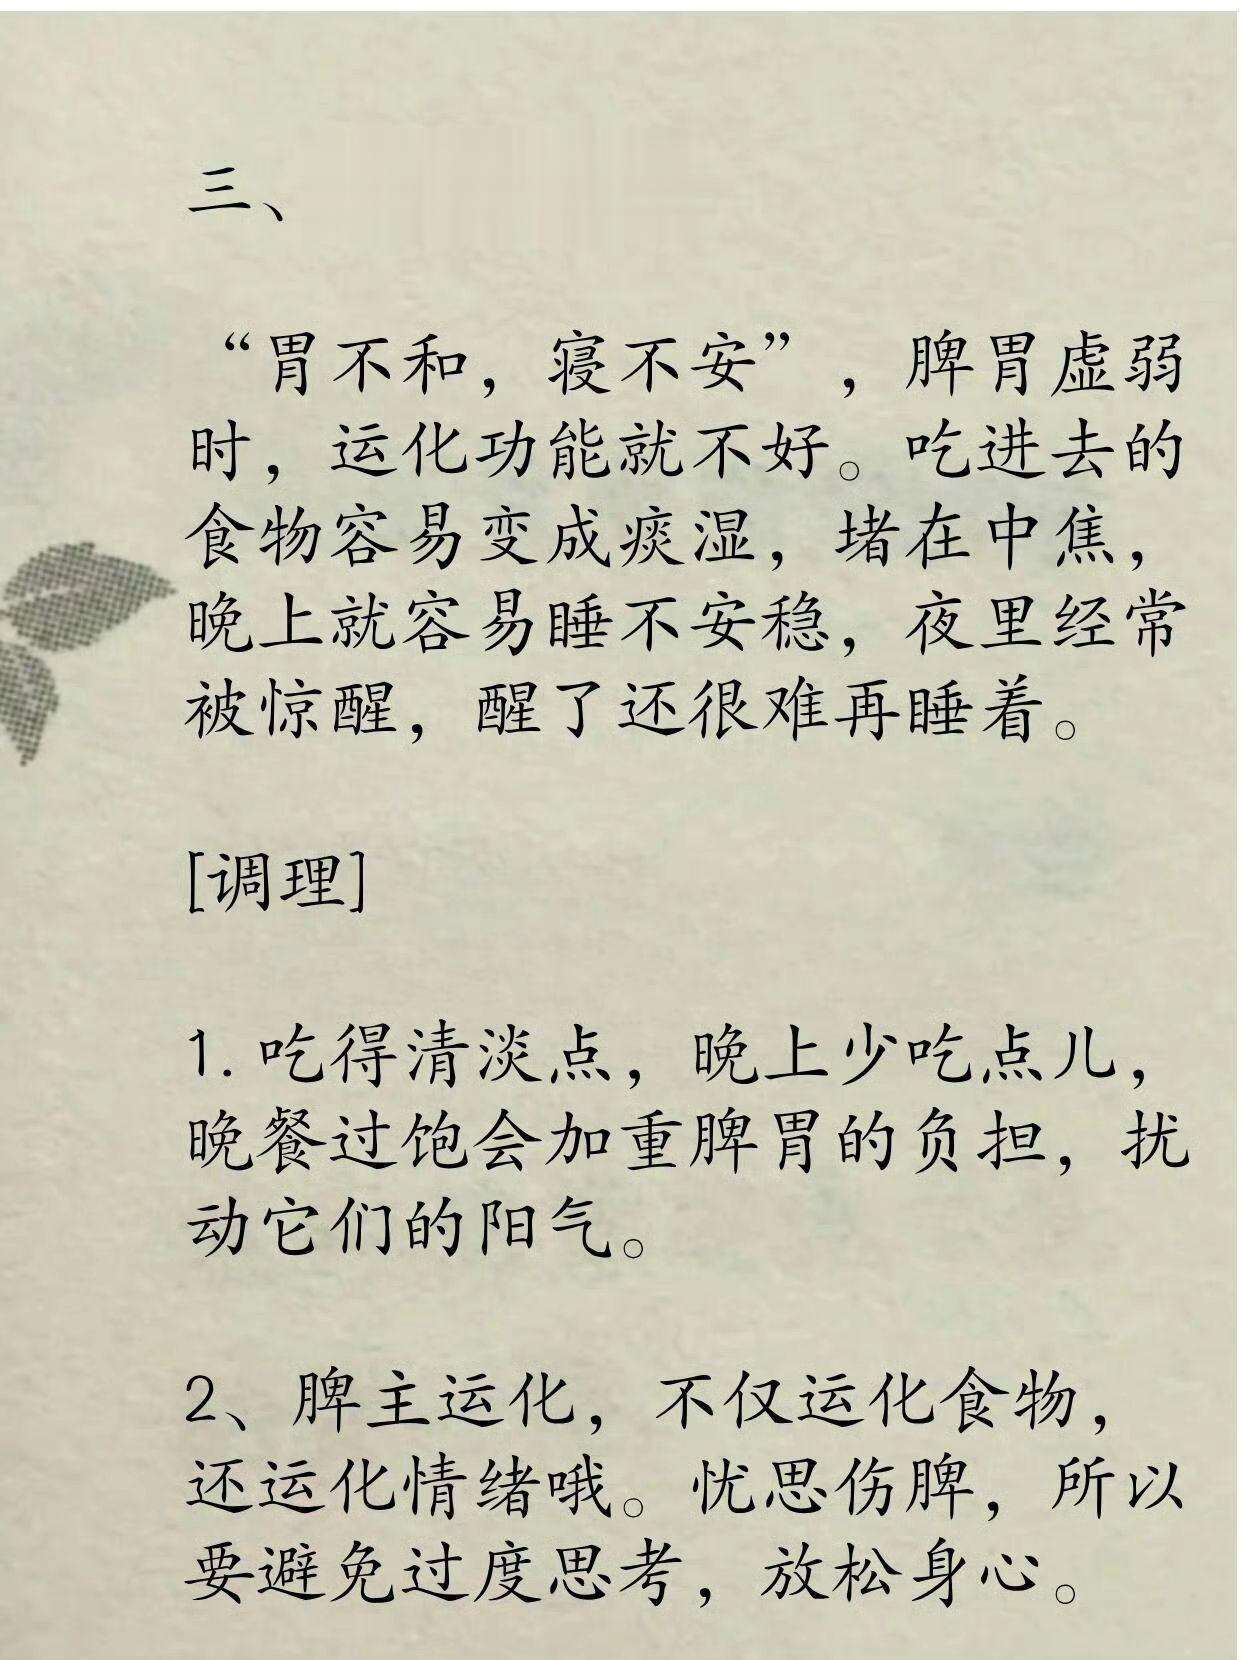 三、
“胃不和，寝不安”，脾胃虚弱
时，运化功能就不好。吃进去的
食物容易变成痰湿，堵在中焦，
晚上就容易睡不安稳，夜里经常
被惊醒，醒了还很难再睡着。
[调理]
1. 吃得清淡点，晚上少吃点儿，
晚餐过饱会加重脾胃的负担，扰
动它们的阳气。
2、脾主运化，不仅运化食物，
还运化情绪哦。忧思伤脾，所以
要避免过度思考，放松身心。